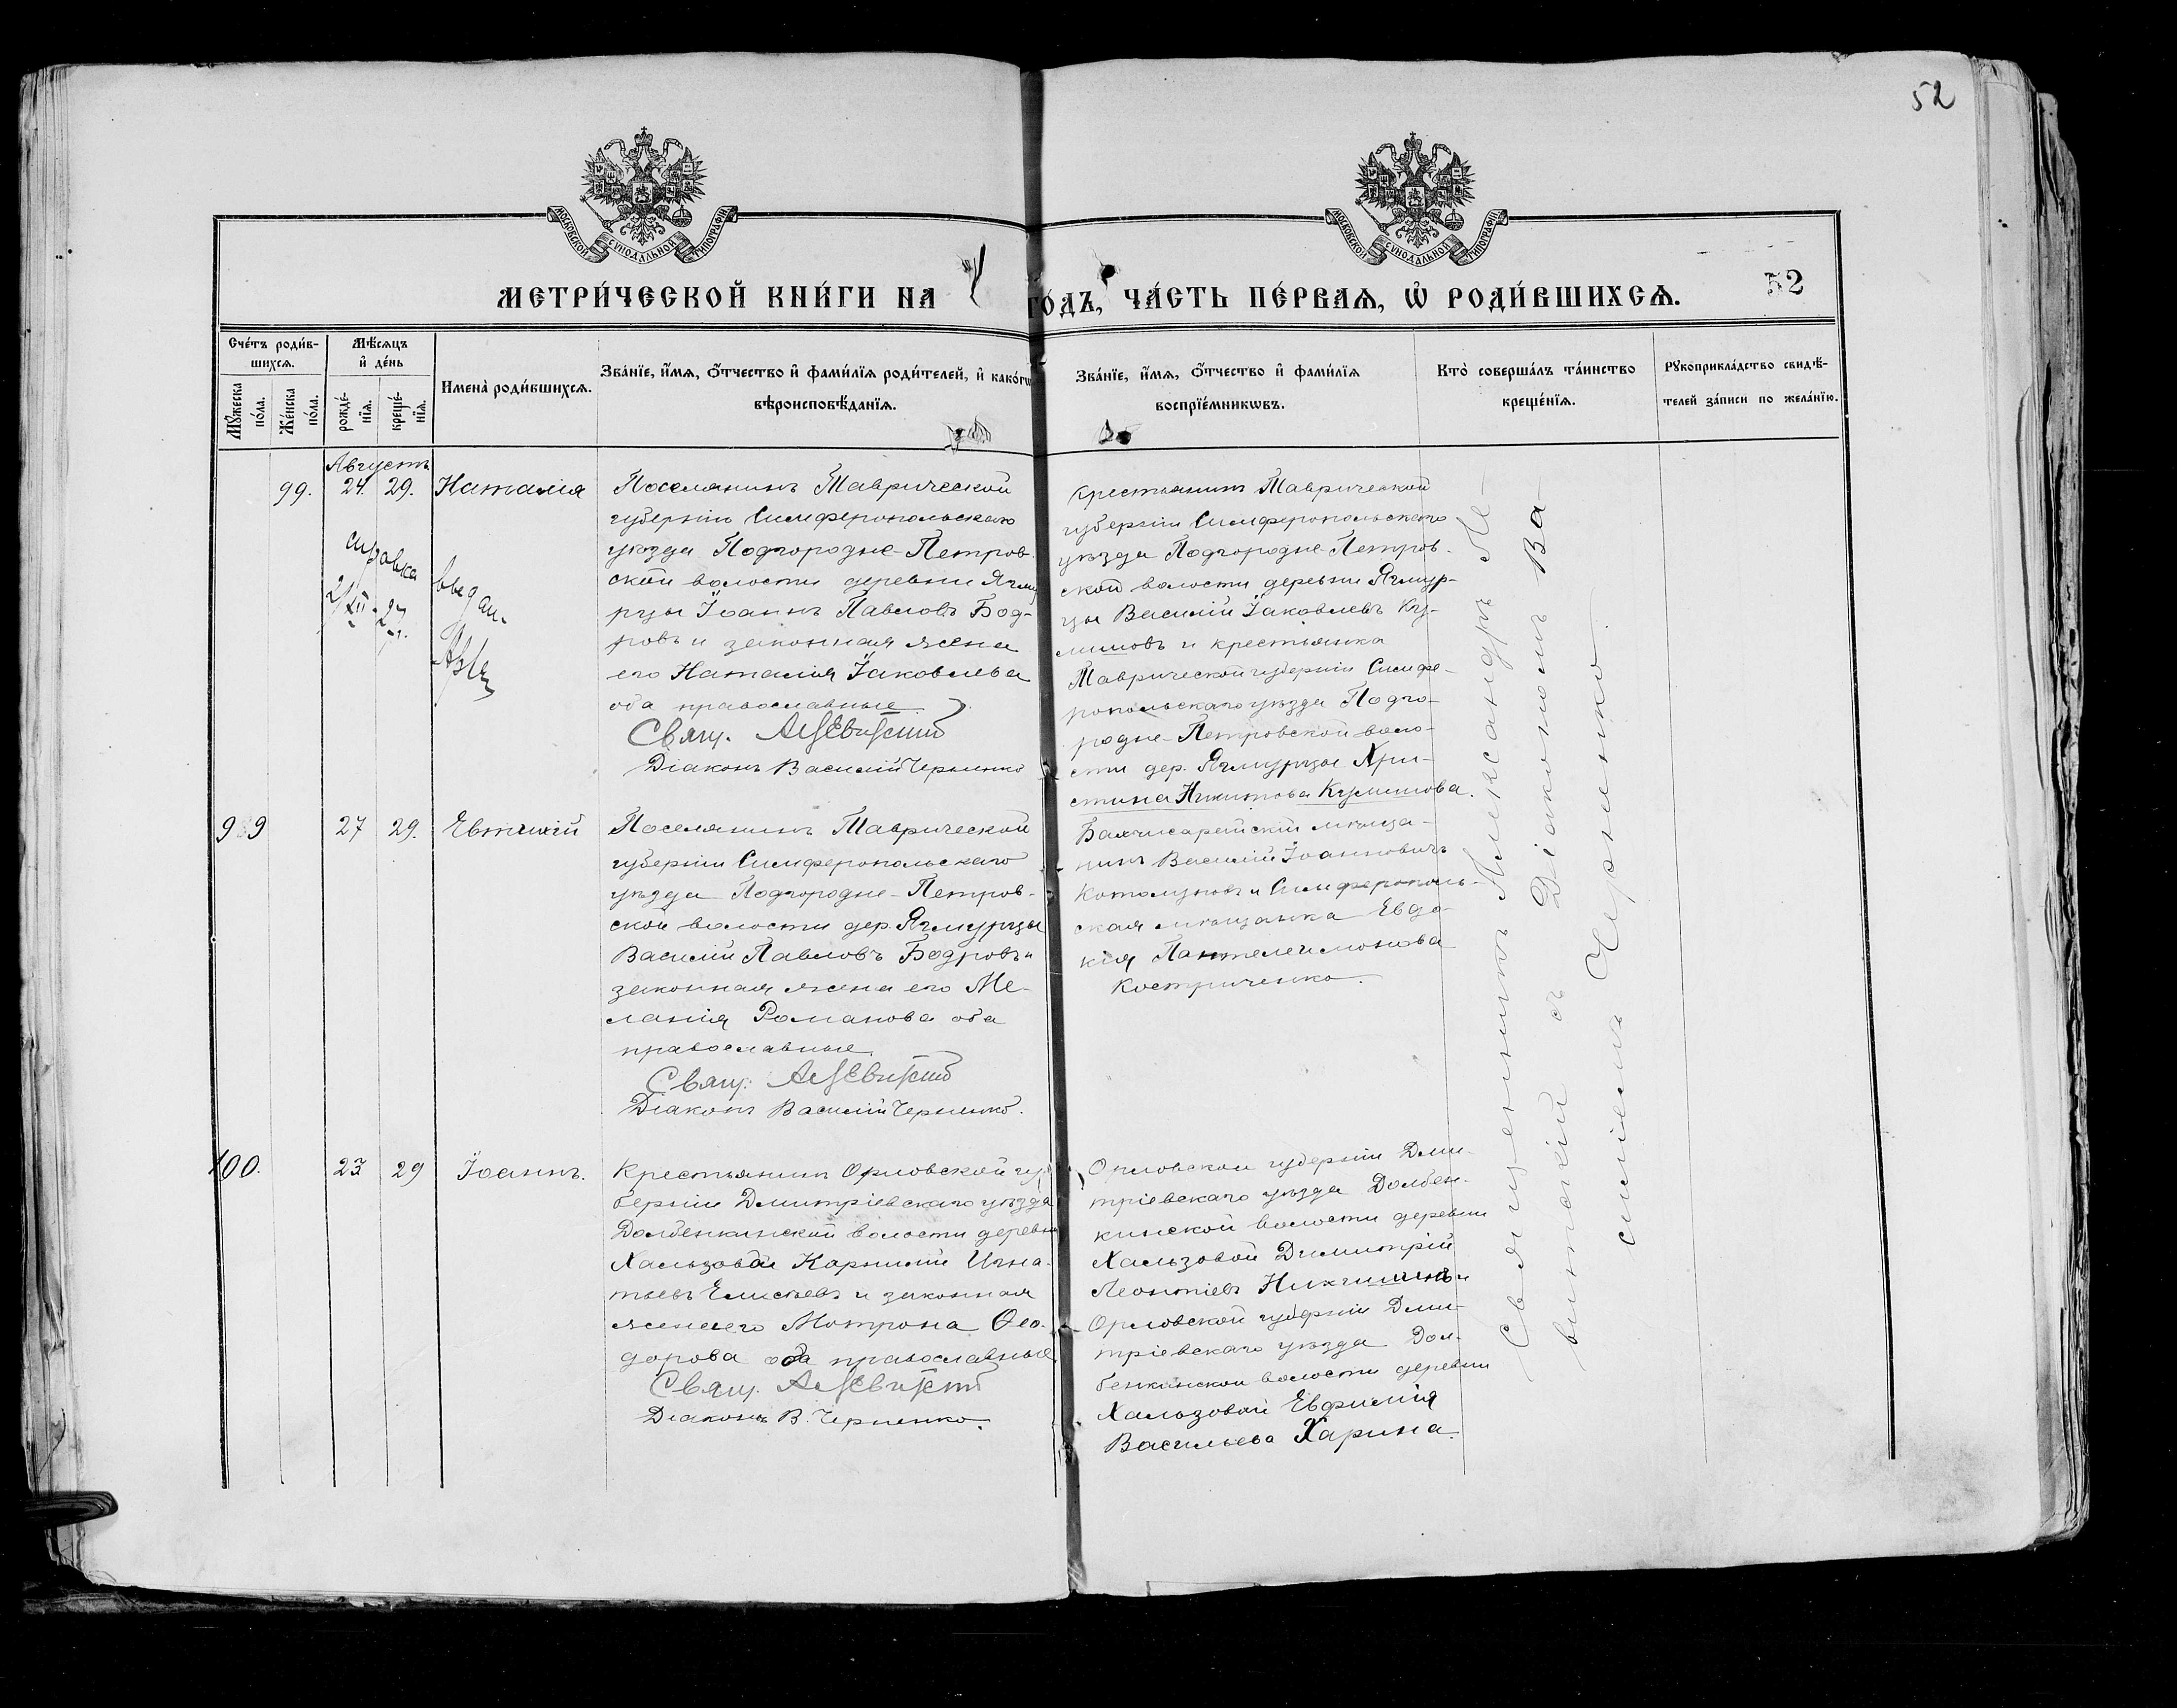 52
МОСКОВСКОЙ СѴНОДАЛЬНОЙ ТИПОГРАФІИ
МОСКОВСКОЙ СѴНОДАЛЬНОЙ ТИПОГРАФІИ
МЕТРИ́ЧЕСКОЙ КНИ́ГИ НА
ГО́ДЪ, ЧА́СТЬ ПЕ́РВАѦ, Ѡ҆ РОДИ́ВШИХСѦ.
52
Сче́тъ роди́в-
шихсѧ.
Мѣ́сѧцъ
и҆ де́нь
Мꙋ́жеска
по́ла.
Же́нска
по́ла.
рожде́-
нїѧ.
креще́-
нїѧ.
Имена̀ роди́вшихсѧ.
Зва́нїе, и҆́мѧ, ѻ҆́тчество и҆ фами́лїѧ роди́телей, и҆ како́гѡ
вѣроисповѣ́данїѧ.
Зва́нїе, и҆́мѧ, ѻ҆́тчество и҆ фами́лїѧ
воспрїе́мникѡвъ.
Кто̀ соверша́лъ та́инство
креще́нїѧ.
Рꙋкоприкла́дство свидѣ́-
телей за́писи по жела́нїю.
Августъ
99.
24.
29.
Наталія
справка
2/XII-27 г.
выдан.
Поселянинъ Таврической
губерніи Симферопольскаго
уѣзда Подгородне-Петров-
ской волости деревни Ягму
рцы Іоаннъ Павловъ Бод-
ровъ и законная жена
его Наталія Іаковлева
оба православные
Свящ.
Діаконъ Василій Черненко
Крестьянинъ Таврической
губерніи Симферопольскаго
уѣзда Подгородне-Петров-
ской волости деревни Ягмур-
цы Василій Іаковлевъ Ку-
лишовъ и крестьянка
Таврической губерніи Симфе-
ропольскаго уѣзда Подго-
родне-Петровской воло-
сти дер. Ягмурцы Хри-
стина Никитова Кулишова.
99
27
29.
Евтихій
Поселянинъ Таврической
губерніи Симферопольскаго
уѣзда Подгородне-Петров-
ской волости дер. Ягмурцы
Василій Павловъ Бодровъ и
законная жена его Ме-
ланія Романова оба
православные.
Свящ.
Діаконъ Василій Черненко.
Бахчисарайскій мѣща-
нинъ Василій Іоанновичъ
и Симферополь-
ская мѣщанка Евдо-
кія Пантелеимонова
Костриченко.
100.
23
29
Іоаннъ.
Крестьянинъ Орловской гу-
берніи Дмитріевскаго уѣзда
Долбенкинской волости деревни
Хальзовой Корнилій Игна-
тьевъ Елисѣевъ и законная
жена его Мотрона Ѳео-
дорова оба православные
Свящ.
Діаконъ В. Черненко.
Орловской губерніи Дми-
тріевскаго уѣзда Долбен-
кинской волости деревни
Хальзовой Димитрій
Леонтіевъ Никишинъ и
Орловской губерніи Дми-
тріевскаго уѣзда Дол-
бенкинской волости деревни
Хальзовой Евфимія
Васильева Харина.
Священникъ Александръ Ле-
витскій съ Діакономъ Ва-
силіемъ Черненко.